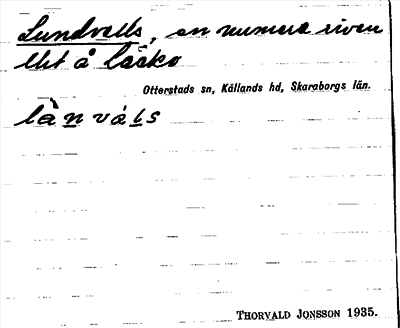 Lundvalls, en numera riven
lht å Läckö
Otterstads sn, Kållands hd, Skaraborgs län.
THORVALD JONSSON 1935.